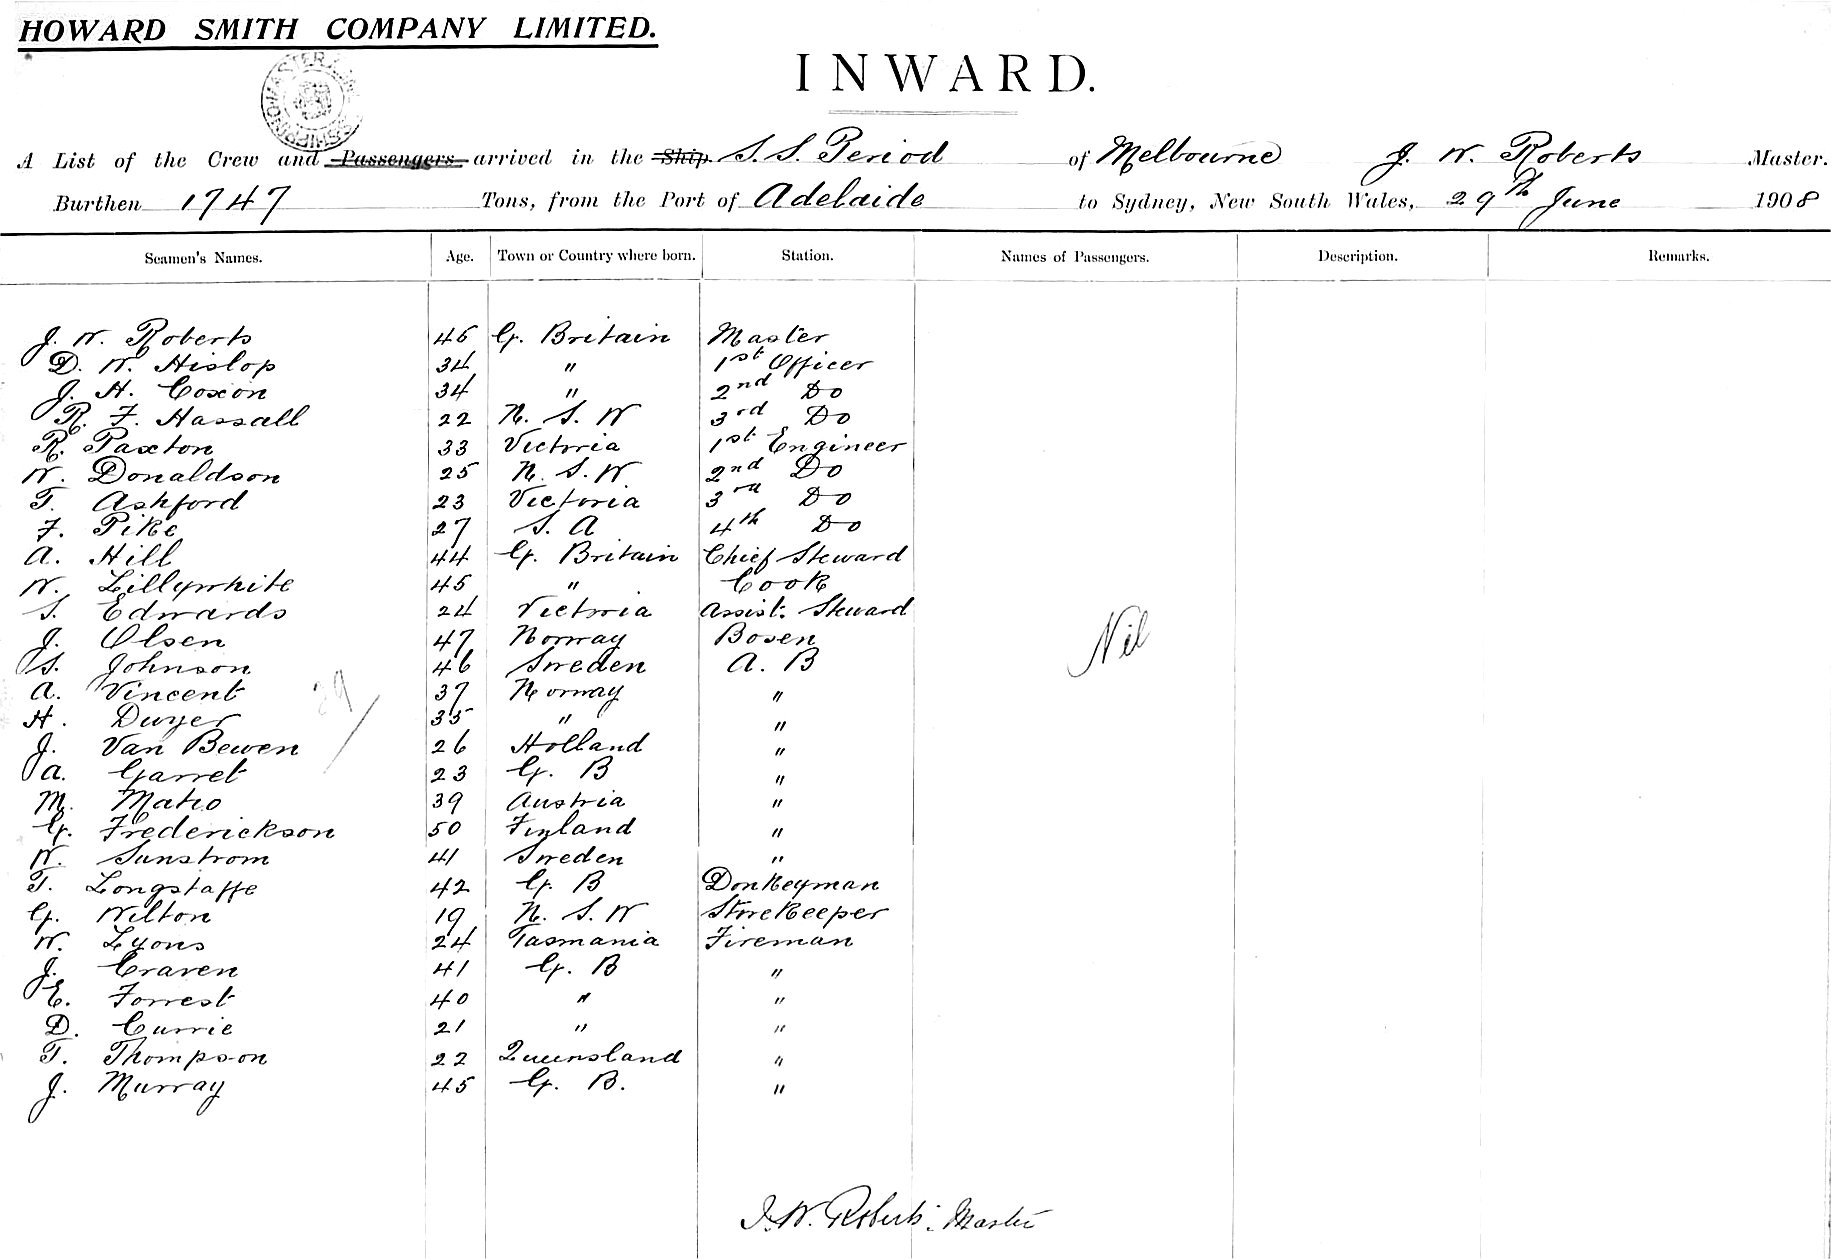 HOWARD SMITH COMPANY LIMITED.
INWARD.
A List of the Crew and Passengers arrived in the Ship S.S. Period of Melbourne J. W. Roberts Master.
Burthen 1747 Tons, from the Port of Adelaide to Sydney, New South Wales, 29th June 1908
Seamen's Names. Age. Town or Country where born. Station. Names of Passengers. Description. Remarks.
J. W. Roberts 46 G. Britain Master
D. W. Hislop 34 " 1st Officer
J. H. Coxon 34 " 2nd Do
R. F. Hassall 22 N. S. W 3rd Do
R. Paxton 33 Victoria 1st Engineer
W. Donaldson 25 N. S. W 2nd Do
T. Ashford 23 Victoria 3rd Do
F. Pike 27 S. A 4th Do
A. Hill 44 G. Britain Chief Steward
W. Lillywhite 45 " Cook
S. Edwards 24 Victoria Assist. Steward
J. Olsen 47 Norway Bosen
S. Johnson 46 Sweden A. B
Nil
A. Vincent 37 Norway "
H. Dwyer 35 " "
J. Van Bewen 26 Holland "
A. Garret 23 G. B "
M. Matio 39 Austria "
G. Frederickson 50 Finland "
W. Sunstrom 41 Sweden "
T. Longstaffe 42 G. B Donkeyman
G. Wilton 19 N. S. W Storekeeper
W. Lyons 24 Tasmania Fireman
J. Craven 41 G. B "
E. Forrest 40 " "
D. Currie 21 " "
T. Thompson 22 Queensland "
J. Murray 45 G. B. "
J. W. Roberts. Master